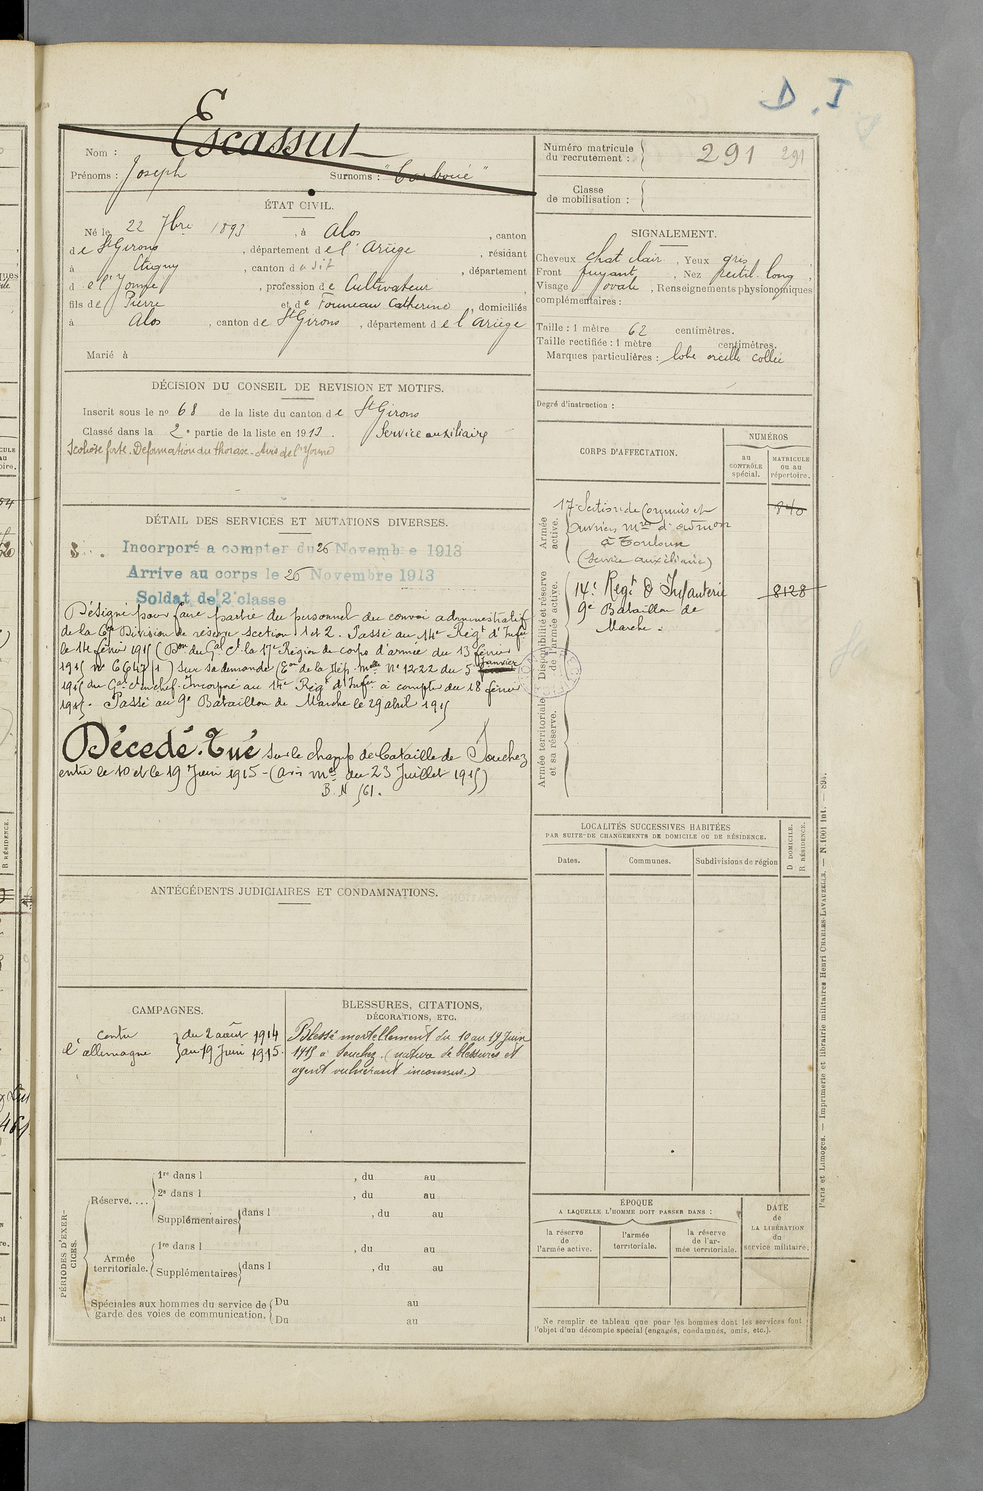 D.I
Escassut
Nom :
Prénoms : Joseph Surnoms : "Carboué"
Numéro matricule du recrutement : 291 291
Classe de mobilisation :
ÉTAT CIVIL.
Né le 22 7bre 1893, à Alos, canton
de St Girons, département de l'Ariège, résidant
à Chigny, canton du dit, département
de l'Yonne, profession de Cultivateur
fils de Pierre et de Fourneau Catherine, domiciliés
à Alos, canton de St Girons, département de l'Ariège
Marié à
SIGNALEMENT.
Cheveux chat clair, Yeux gris
Front fuyant, Nez rectil. long,
Visage ovale, Renseignements physionomiques
complémentaires :
Taille : 1 mètre 62 centimètres.
Taille rectifiée : 1 mètre centimètres.
Marques particulières : lobe oreille collée
Degré d'instruction :
DÉCISION DU CONSEIL DE REVISION ET MOTIFS.
Inscrit sous le no 68 de la liste du canton de St Girons
Classé dans la 2e partie de la liste en 1913. Service auxiliaire
Scoliose forte. Déformation du thorax. Avis de l'Yonne
DÉTAIL DES SERVICES ET MUTATIONS DIVERSES.
Incorporé a compter du 26 Novembre 1913
Arrive au corps le 26 Novembre 1913
Soldat de 2e classe
Désigné pour faire partie du personnel du convoi administratif
de la Division de réserve section 1 et 2. Passé au 14e Régt d'Infie
le 14 février 1915 (Don du Gal Ct la 17e Région de corps d'armée du 13 février
1915 no 6647/1) sur sa demande (Eon de la Dép. mlle No 1222 du 5 janvier
1915 du Gal Ct en chef. Incorporé au 14e Régt d'Infie à compter du 18 février
1915. Passé au 9e Bataillon de Marche le 29 abril 1915
Décedé. Tué sur le champ de bataille de Souchez
entre le 10 et le 19 Juin 1915 - (avis mel du 23 Juillet 1915)
B. N 561.
CORPS D'AFFECTATION.
NUMÉROS
au CONTRÔLE spécial.
MATRICULE ou au répertoire.
Armée active.
17 Section de Commis et
Ouvriers mres d'admon
à Toulouse
(Service auxiliaire)
840
Disponibilité et réserve de l'armée active.
14e Régt d'Infanterie
9e Bataillon de
Marche.
8128
Armée territoriale et sa réserve.
LOCALITÉS SUCCESSIVES HABITÉES
PAR SUITE DE CHANGEMENTS DE DOMICILE OU DE RÉSIDENCE.
Dates. Communes. Subdivisions de région
D DOMICILE.
R RÉSIDENCE.
ANTÉCÉDENTS JUDICIAIRES ET CONDAMNATIONS.
CAMPAGNES.
contre l'allemagne
du 2 août 1914
au 19 Juin 1915.
BLESSURES, CITATIONS,
DÉCORATIONS, ETC.
Blessé mortellement du 10 au 19 Juin
1915 à Souchez. (nature de blessures et
agent vulnérant inconnus.)
PÉRIODES D'EXERCICES.
Réserve....
1re dans l , du au
2e dans l , du au
Supplémentaires dans l , du au
Armée territoriale.
1re dans l , du au
Supplémentaires dans l , du au
Spéciales aux hommes du service de garde des voies de communication.
Du au
Du au
ÉPOQUE
A LAQUELLE L'HOMME DOIT PASSER DANS :
la réserve de l'armée active.
l'armée territoriale.
la réserve de l'armée territoriale.
DATE de LA LIBÉRATION du service militaire.
Ne remplir ce tableau que pour les hommes dont les services font
l'objet d'un décompte spécial (engagés, condamnés, omis, etc.).
Paris et Limoges. — Imprimerie et librairie militaires Henri CHARLES-LAVAUZELLE. — N. 1001 Int. —